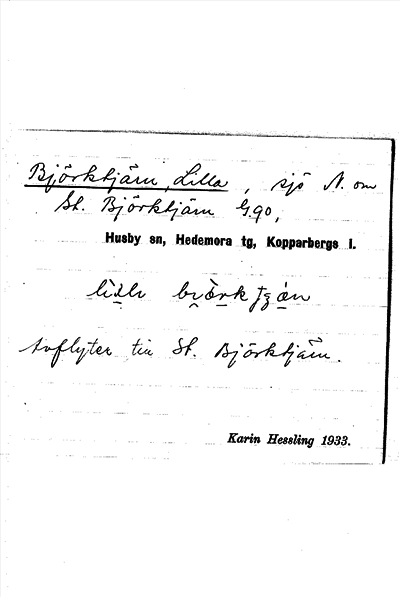 Björktjärn, Lilla, sjö N. om
St. Björktjärn G.90,
Husby sn, Hedemora tg, Kopparbergs l.
Avflyter till St. Björktjärn.
Karin Hessling 1933.